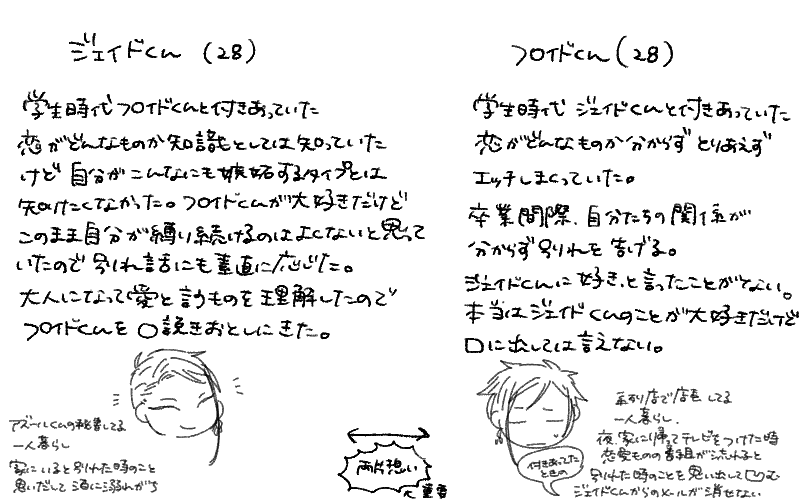 ジェイドくん（28）
学生時代フロイドくんと付きあっていた
恋がどんなものか知識としては知っていた
けど自分がこんなにも嫉妬するタイプとは
知りたくなかった。フロイドくんが大好きだけど
このまま自分が縛り続けるのはよくないと思って
いたので別れ話にも素直に応じた。
大人になって愛と言うものを理解したので
フロイドくんを口説きおとしにきた。
アズールくんの秘書してる
一人暮らし
家にいると別れた時のこと
思いだして酒に溺れがち
両片想い
フロイドくん（28）
学生時代 ジェイドくんと付きあっていた
恋がどんなものか分からず とりあえず
エッチしまくっていた。
卒業間際、自分たちの関係が
分からず別れを告げる。
ジェイドくんに好き、と言ったことがない。
本当はジェイドくんのことが大好きだけど
口に出しては言えない。
付きあってた
ときの
一人暮らし、
夜、家に帰ってテレビをつけた時
恋愛ものの番組が流れると
別れた時のことを思い出して凹む
ジェイドくんからのメールが消せない